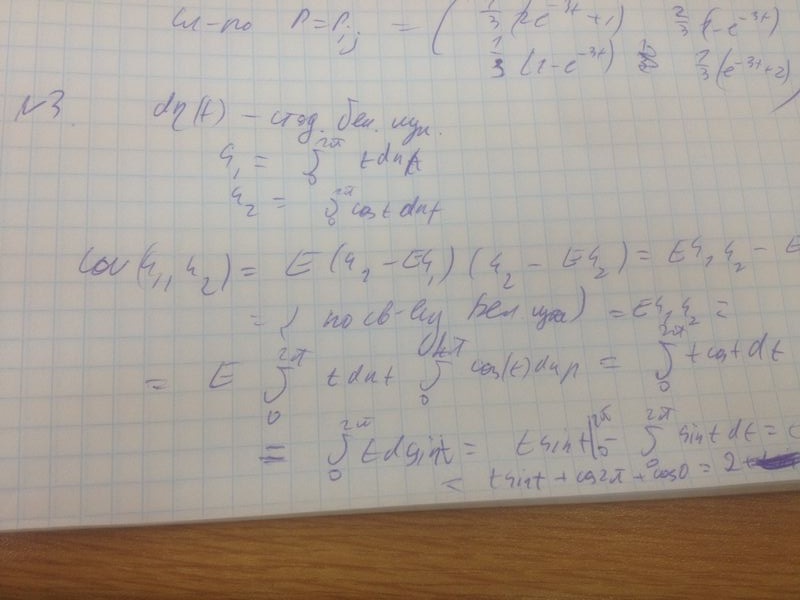 P = P_ij = ( 1/3 (2e^{-3t} + 1) 2/3 (1 - e^{-3t})
1/3 (1 - e^{-3t}) 1/3 (e^{-3t} + 2) )
№3. dη(t) – станд. бел. шум.
ξ_1 = ∫_0^{2π} t dηt
ξ_2 = ∫_0^{2π} cost dηt
cov(ξ_1, ξ_2) = E (ξ_1 - Eξ_1) (ξ_2 - Eξ_2) = Eξ_1 ξ_2 - E
= ( по св-ву бел шума ) = Eξ_1 ξ_2 =
= E ∫_0^{2π} t dηt ∫_0^{2π} cos(t) dηt = ∫_0^{2π} t cost dt
= ∫_0^{2π} t dsint = t sint |_0^{2π} - ∫_0^{2π} sint dt =
t sint + cos2π + cos0 = 2